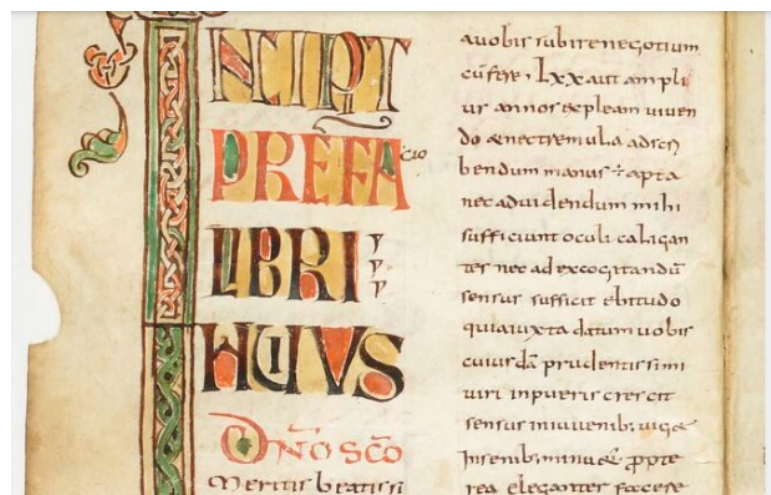 INCIPIT
PREFA
cio
LIBRI
HUIUS
DÑO SCŌ
Meritis beatissi
auobis subire negotium
cū fere i Lxx aut ampli
us annos expleam viuen
do & nec tremula adscri
bendum manus ÷ apta
nec aduidendum mihi
sufficiunt oculi caligan
tes nec ad excogitandū
sensus sufficit ebitudo
quia iuxta datum uobis
cuiusdā prudentissimi
uiri in pueris crescit
sensus in iuuenib; uig&
In senib; minu&
rea eleganter